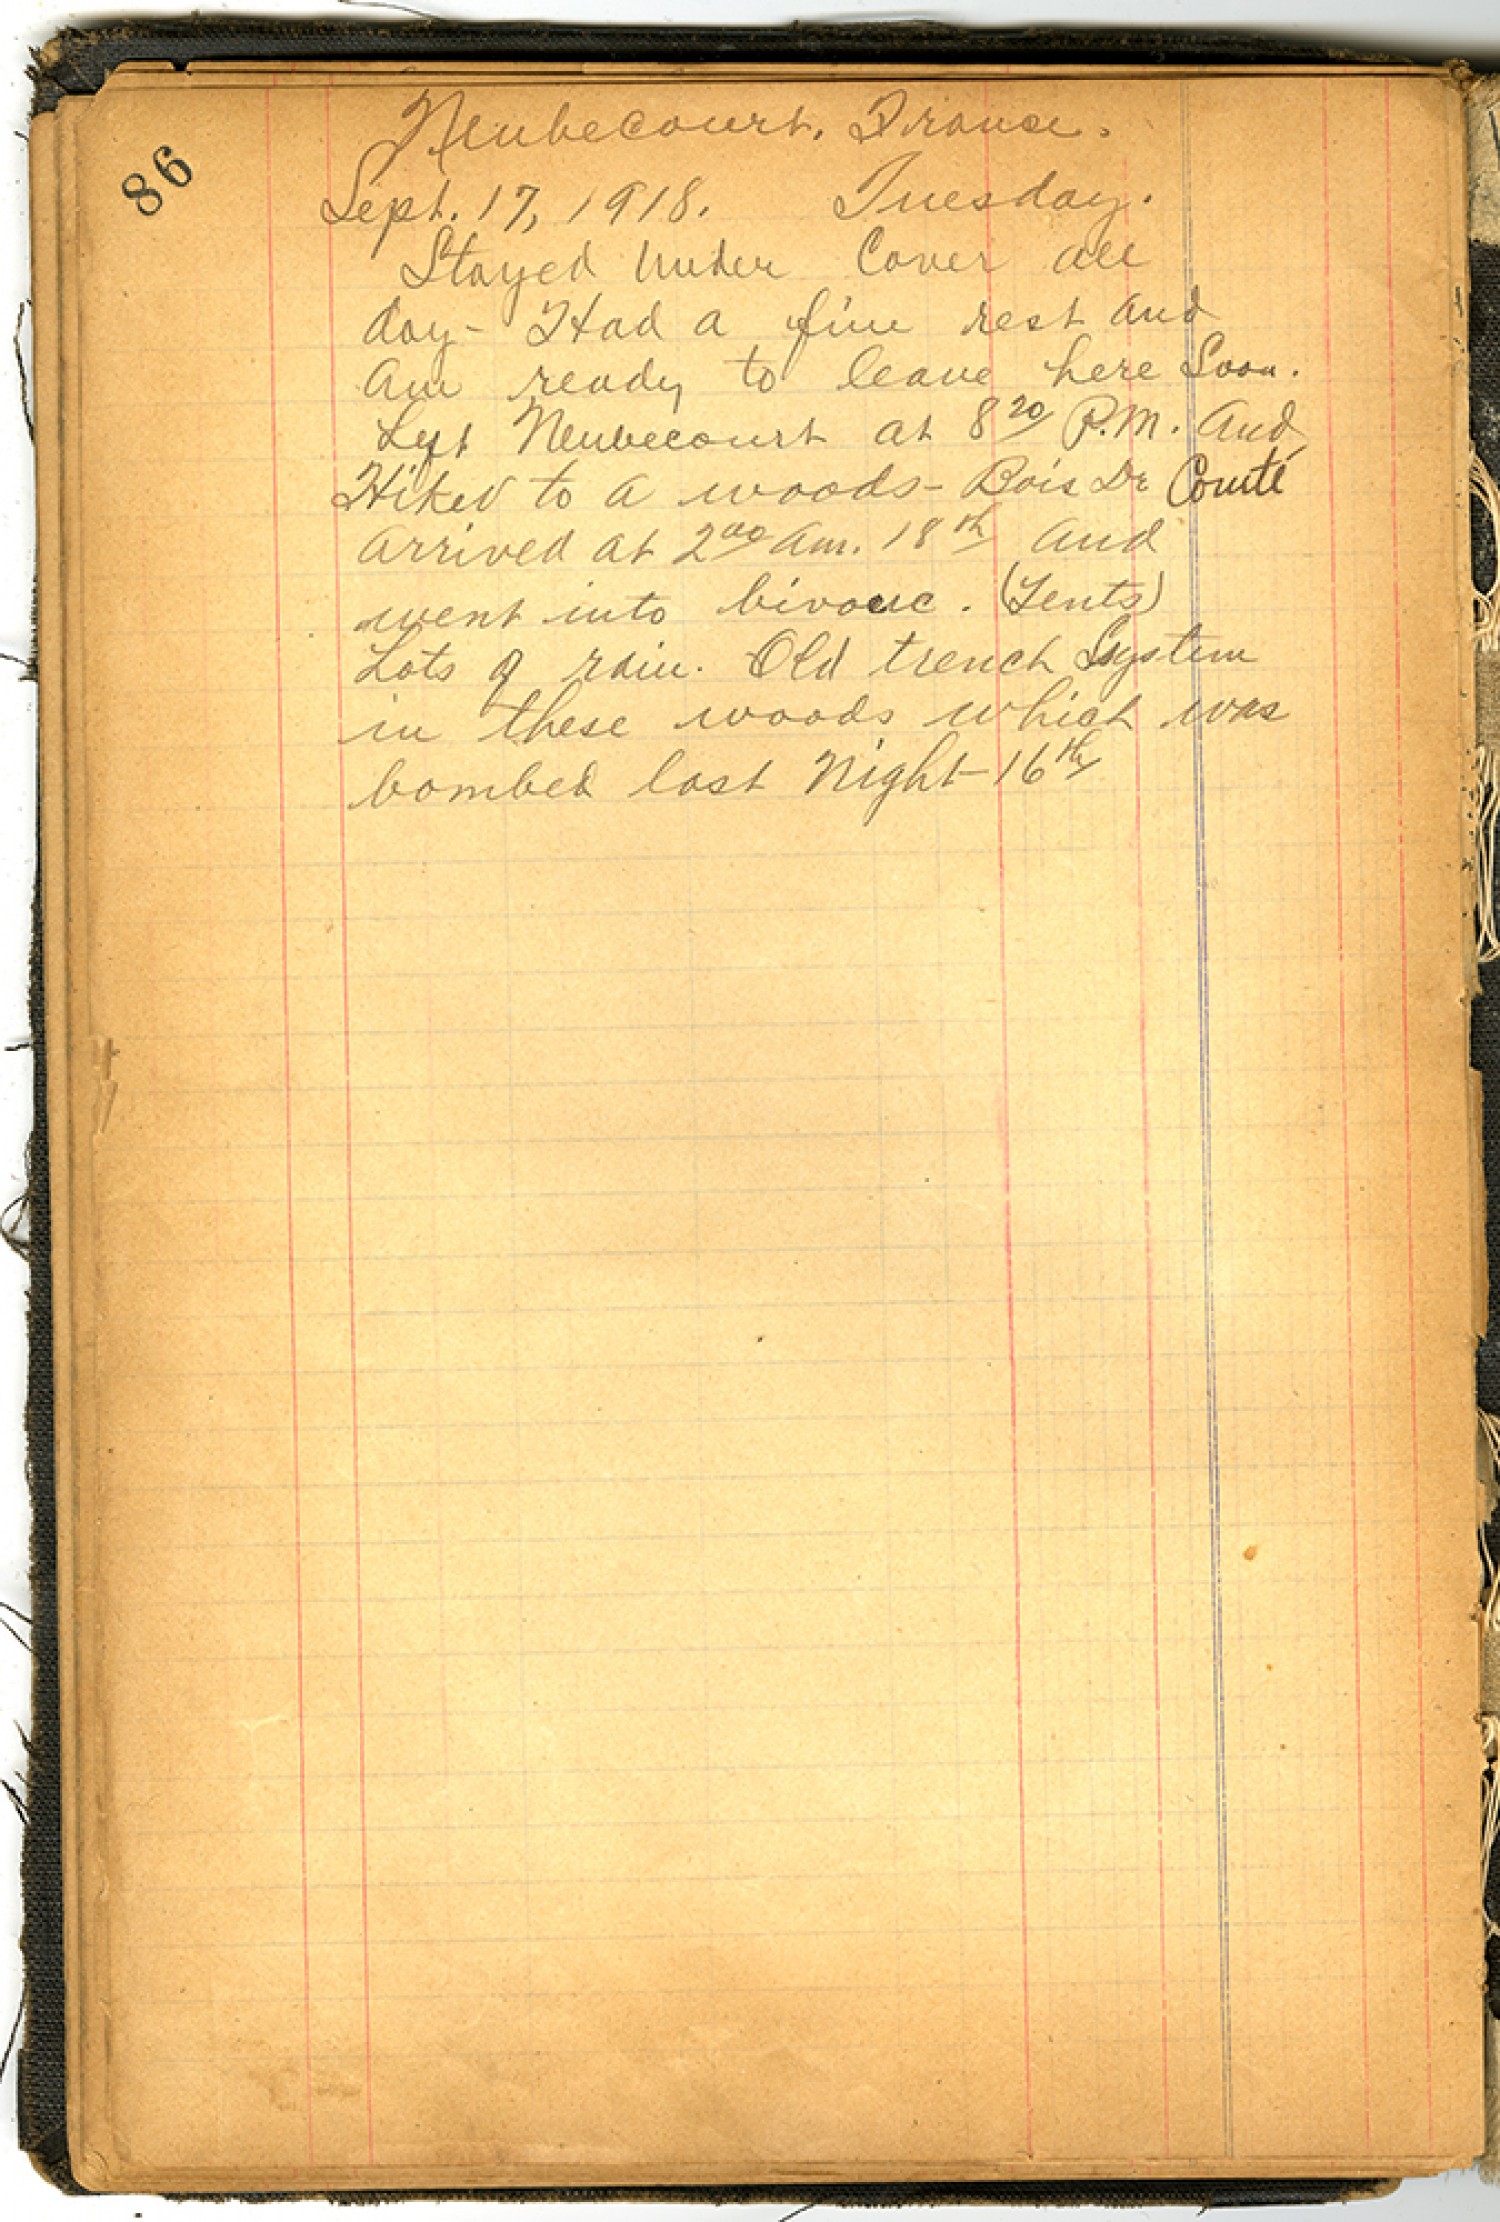 86
Neubecourt, France.
Sept. 17, 1918. Tuesday.
Stayed under Cover all
day - Had a fine rest and
am ready to leave here Soon.
Left Neubecourt at 8 20 P.M. and
Hiked to a woods - Bois De Comté
arrived at 2 00 Am. 18th and
went into bivouc. (Tents)
Lots of rain. Old trench System
in these woods which was
bombed last Night - 16th